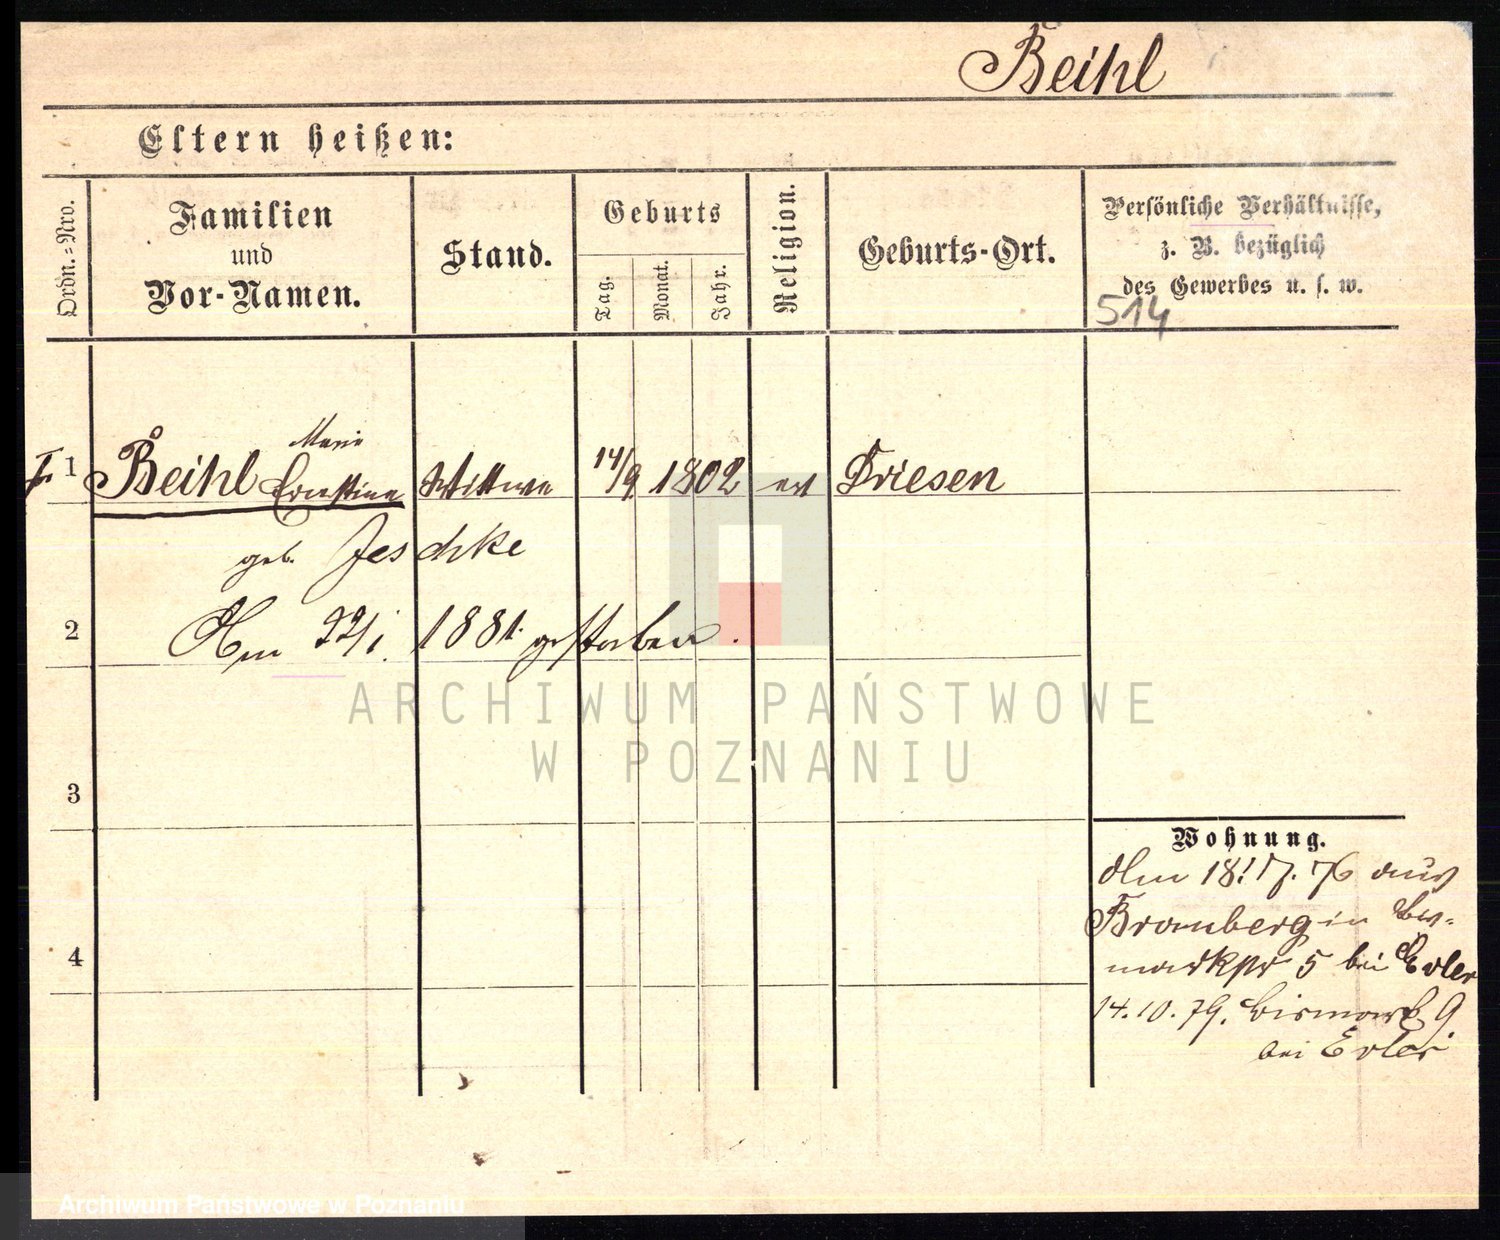 Beihl
Eltern heißen:
Ordn.-Nro.
Familien
und
Vor-Namen.
Stand.
Geburts
Tag.
Monat.
Jahr.
Religion.
Geburts-Ort.
Persönliche Verhältnisse,
z. B. bezüglich
des Gewerbes u. s. w.
514
Marie
I. 1 Beihl Ernestine Wittwe 14/9 1802 ev Driesen
geb. Jeschke
2 Am 22/1. 1881. gestorben.
ARCHIWUM PAŃSTWOWE
W POZNANIU
3
Wohnung.
Am 18. 17. 76 aus
Bromberg in
4
5 bei Erler
14.10.79. Bismark 9
bei Erler
Archiwum Państwowe w Poznaniu